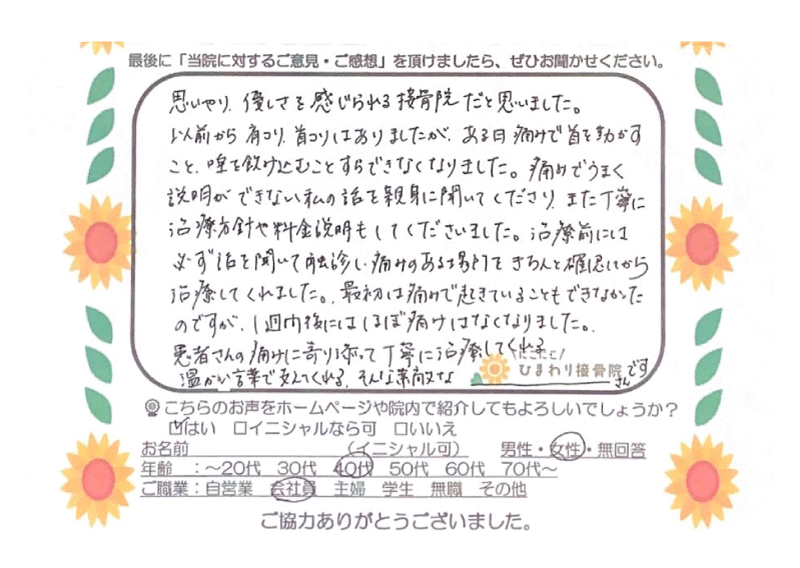 最後に「当院に対するご意見・ご感想」を頂けましたら、ぜひお聞かせください。
思いやり、優しさを感じられる接骨院だと思いました。
以前から肩コリ、首コリはありましたが、ある日痛みで首を動かす
こと、唾を飲け込むことすらできなくなりました。痛みでうまく
説明ができない私の話を親身に聞いてくださり、また丁寧に
治療方針や料金説明もしてくださいました。治療前には
必ず話を聞いて触診し、痛みのある場所をきちんと確認してから
治療してくれました。最初は痛みで起きていることもできなかった
のですが、1週間後にはほぼ痛みはなくなりました。
患者さんの痛みに寄り添って丁寧に治療してくれる
温かい言葉で支えてくれる、そんな素敵な
\にこにこ/
ひまわり接骨院さんです
こちらのお声をホームページや院内で紹介してもよろしいでしょうか?
☑はい □イニシャルなら可 □いいえ
お名前 (イニシャル可) 男性・女性・無回答
年齢 :～20代 30代 40代 50代 60代 70代～
ご職業:自営業 会社員 主婦 学生 無職 その他
ご協力ありがとうございました。